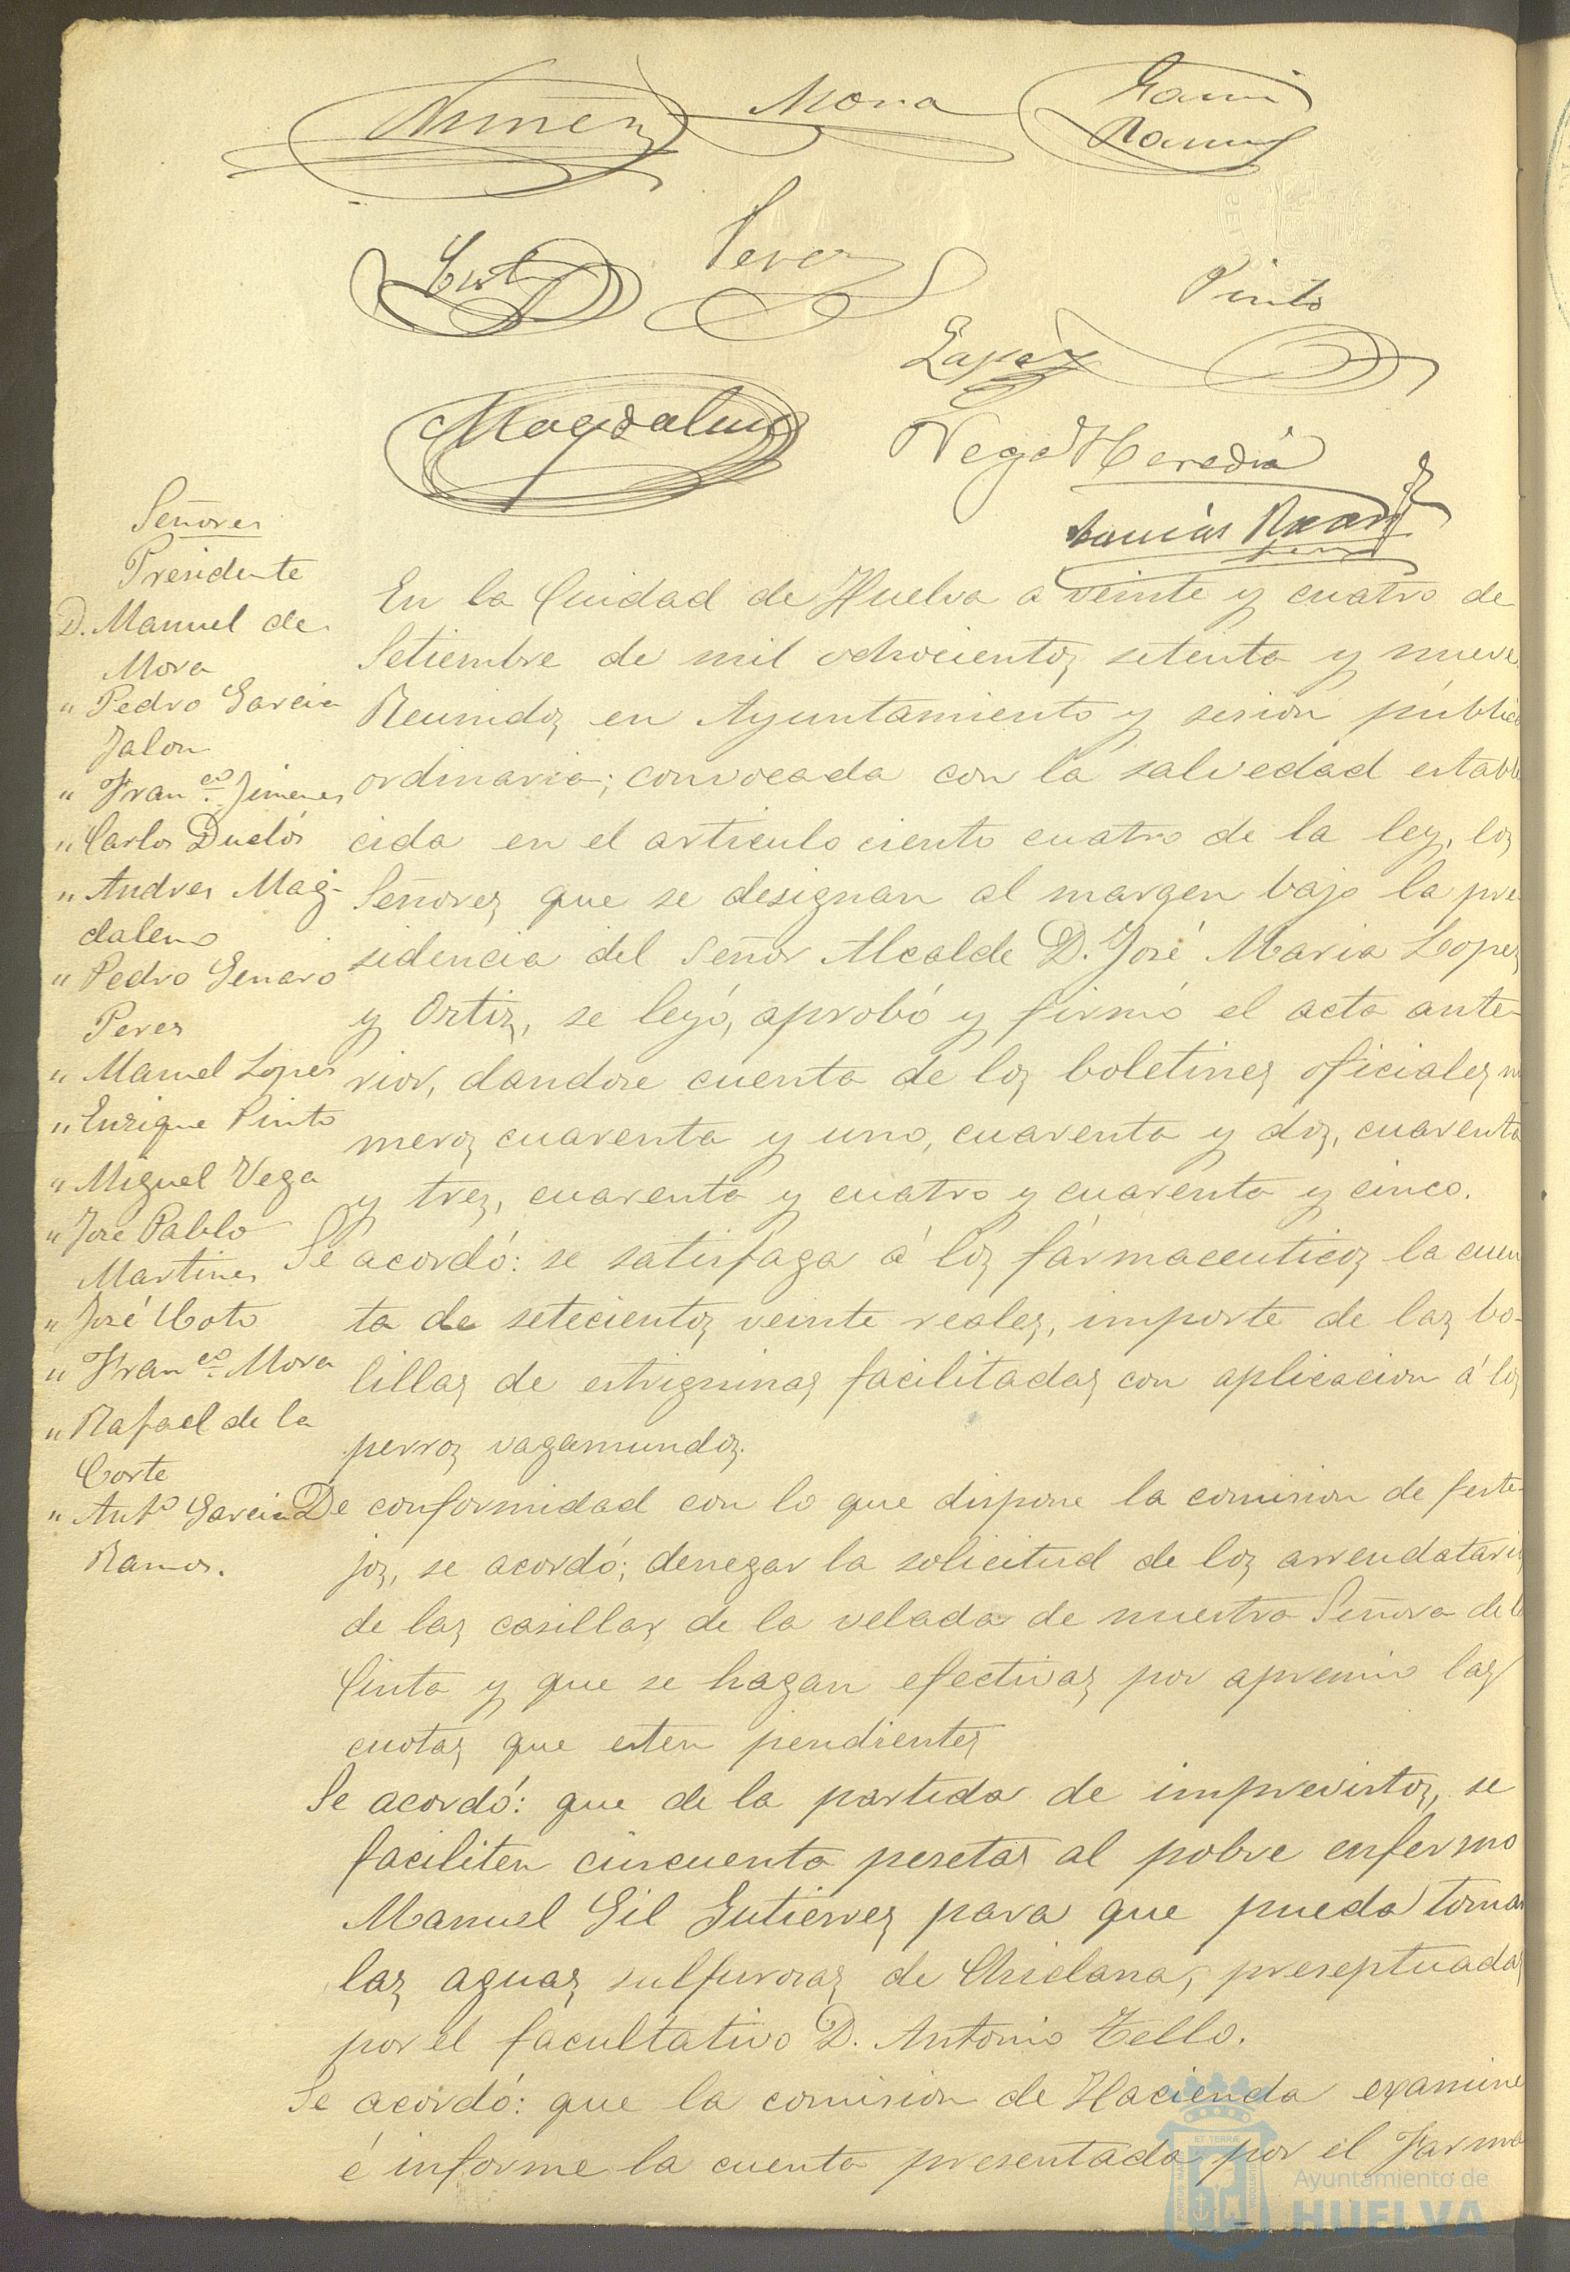 Nuñez Mora Garcia
Ramos
Perez
Pinto
Lopez
Magdaleno
Vega Heredia
Señores
Presidente
D. Manuel de
Mora
" Pedro Garcia
Jalon
" Fran.co Jimenes
" Carlos Duclós
" Andres Mag-
daleno
" Pedro Genaro
Peres
" Manuel Lopes
" Enrique Pinto
" Miguel Vega
" José Pablo
Martines
" José Coto
" Fran.co Mora
" Rafael de la
Corte
" Ant.o Garcia
Ramos.
En la Ciudad de Huelva a veinte y cuatro de
Setiembre de mil ochocientos setenta y nueve.
Reunidos en Ayuntamiento y sesion públic
ordinaria; convocada con la salvedad establ
cida en el articulo ciento cuatro de la ley, los
Señores que se designan al margen bajo la pre-
sidencia del Señor Alcalde D. José Maria Lopez
y Ortiz, se leyó, aprobó y firmó el acta ante-
rior, dandose cuenta de los boletines oficiales nu
meros cuarenta y uno, cuarenta y dos, cuarenta
y tres, cuarenta y cuatro y cuarenta y cinco.
Se acordó: se satisfaga á los fármaceuticos la cuen
ta de setecientos veinte reales, importe de las bo-
lillas de estrigninas facilitadas con aplicacion á los
perros vagamundos.
De conformidad con lo que dispone la comision de feste-
jos, se acordó; denegar la solicitud de los arrendatari
de las casillas de la velada de nuestra Señora de l
Cinta y que se hagan efectivas por apremio las
cuotas que esten pendientes
Se acordó: que de la partida de imprevistos, se
faciliten cincuenta pesetas al pobre enfermo
Manuel Gil Gutierres para que pueda tomar
las aguas sulfurosas de Chiclana, preseptuadas
por el facultativo D. Antonio Tello.
Se acordó: que la comision de Hacienda examine
é informe la cuenta presentada por el Farma
Ayuntamiento de
HUELVA